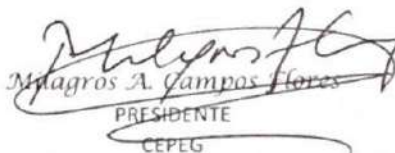 Milagros A. Campos Flores
PRESIDENTE
CEPEG